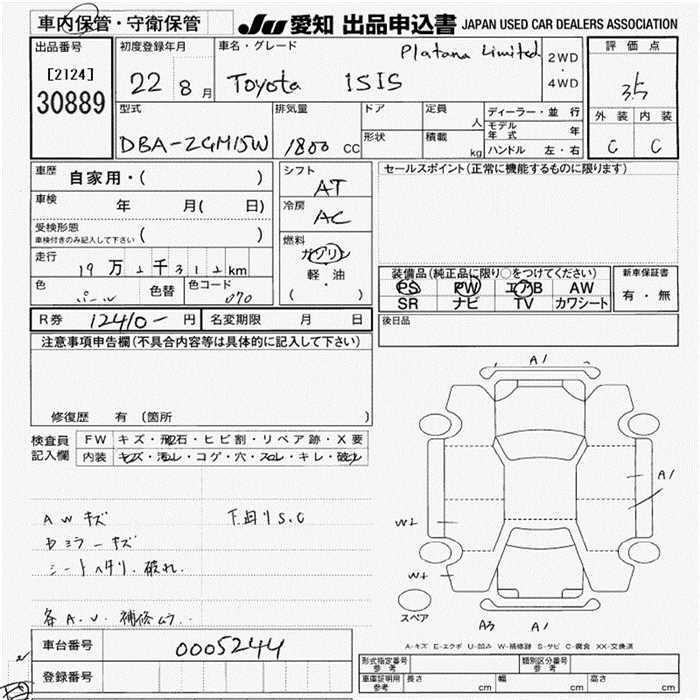 車内保管・守衛保管
JU 愛知 出品申込書 JAPAN USED CAR DEALERS ASSOCIATION
出品番号
[2124]
30889
初度登録年月
22 8 月
車名・グレード
Platana Limited
Toyota ISIS
2WD
・
4WD
評価点
3.5
外装 内装
C C
型式
DBA-ZGM15W
排気量
1800 CC
ドア
形状
定員
人
積載
kg
ディーラー・並行
モデル年式 年
ハンドル 左・右
車歴
自家用・( )
車検
年 月( 日)
受検形態
車検付きのみ記入して下さい ( )
走行
19万2千312km
色
パール
色替
色コード
070
シフト
AT
冷房
AC
燃料
ガソリン
軽・油
( )
セールスポイント(正常に機能するものに限ります)
装備品(純正品に限り○をつけてください)
PS PW エアB AW
SR ナビ TV カワシート
新車保証書
有・無
R券 12410- 円
名変期限 月 日
後日品
注意事項申告欄(不具合内容等は具体的に記入して下さい)
修復歴 有 (箇所 )
検査員
記入欄
FW キズ・飛石・ヒビ割・リペア跡・X要
内装 キズ・汚れ・コゲ・穴・スレ・キレ・破れ
AWキズ
下回りS.C
シートヘタリ、破れ.
各A.U. 補修ムラ..
A1
A1
W2
スペア
A3 A1
A-キズ E-エクボ U-凹み W-補修跡 S-サビ C-腐食 XX-交換済
車台番号
0005244
登録番号
型式指定番号
参考
類別区分番号
参考
車庫証明用
参考
長さ cm
幅 cm
高さ cm